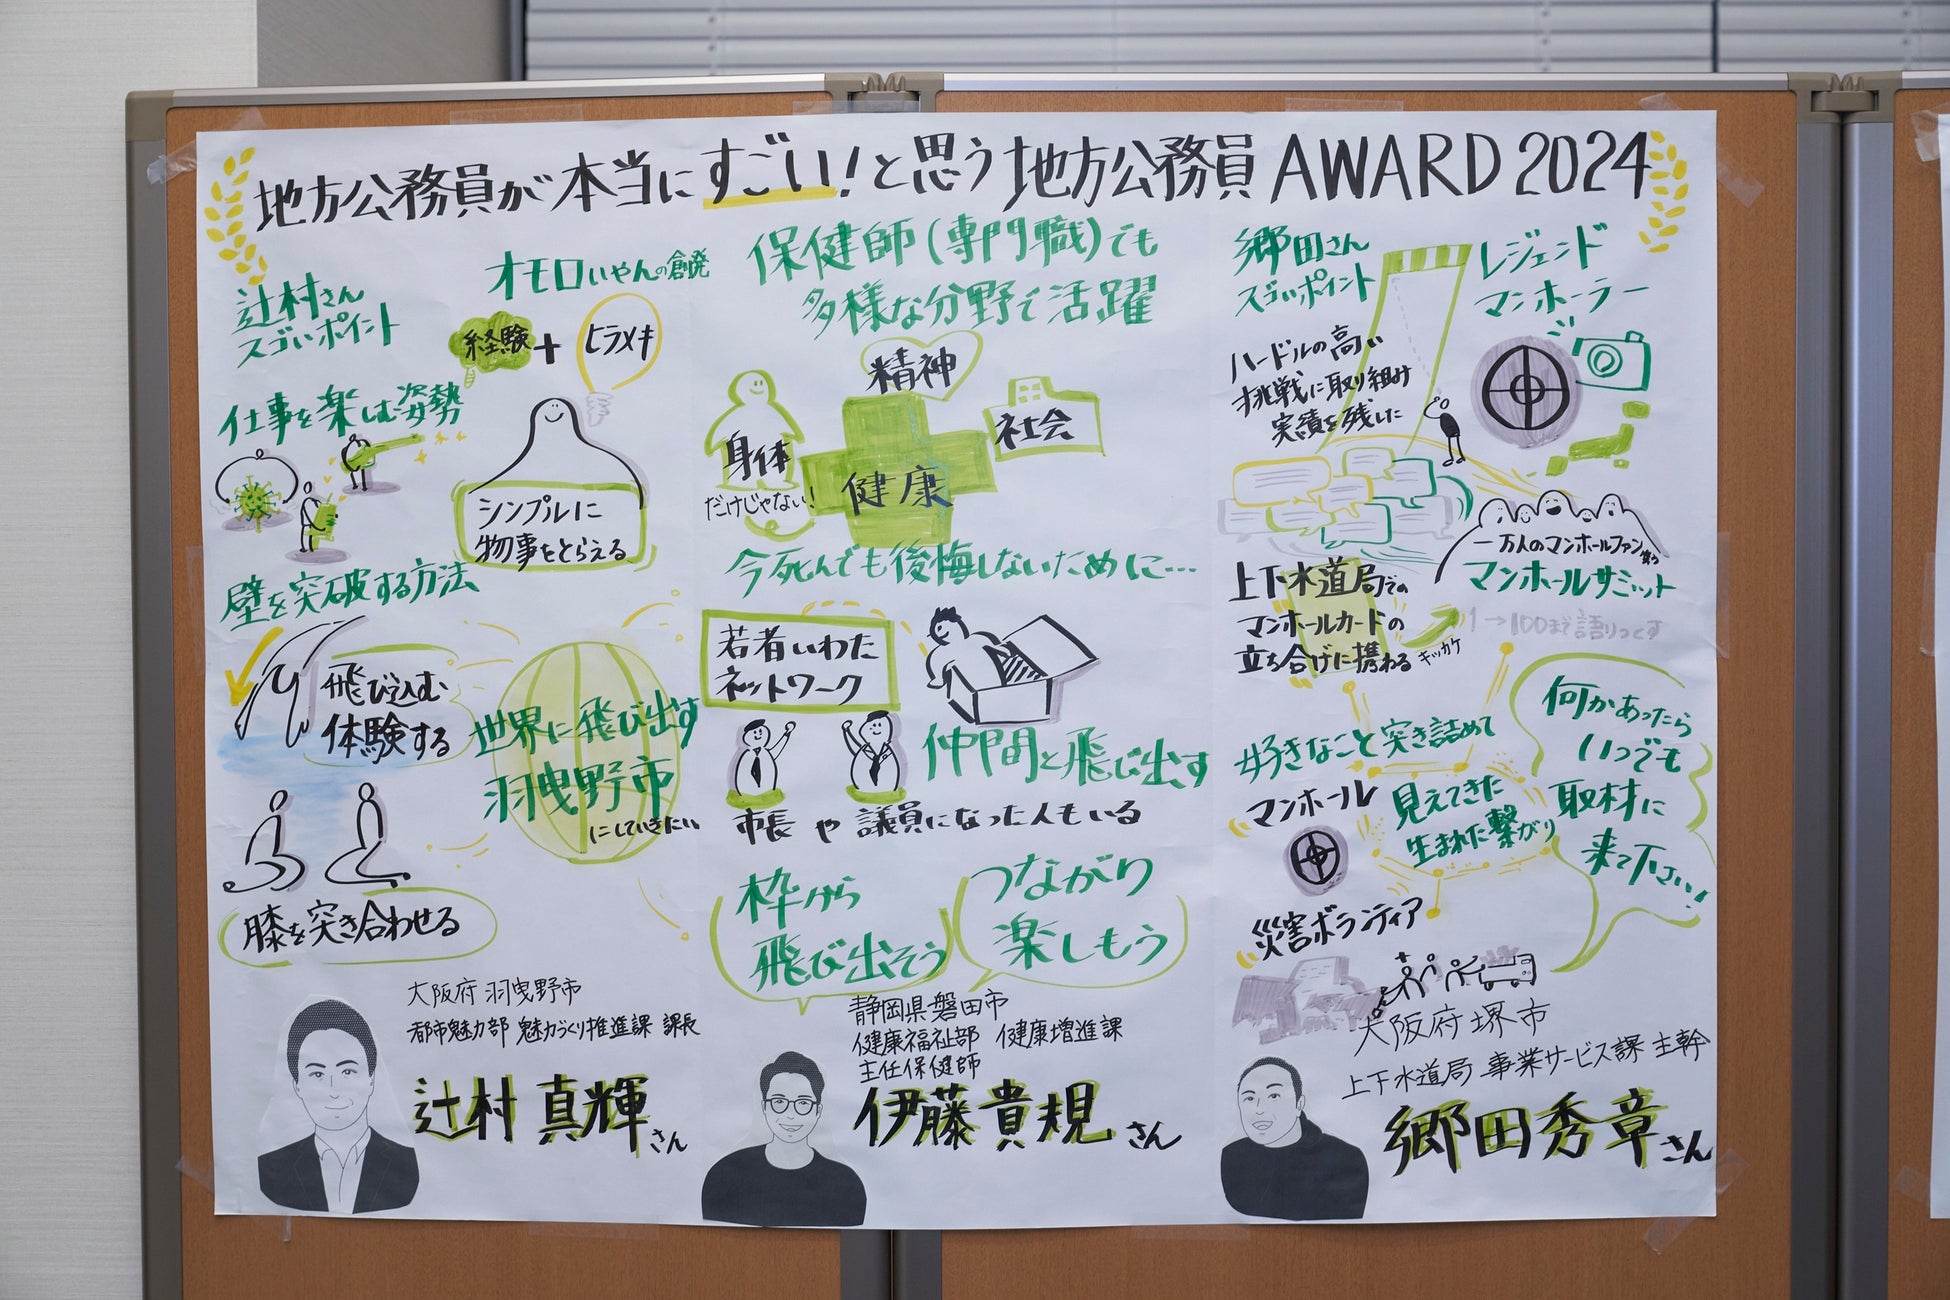 地方公務員が本当にすごい!と思う地方公務員 AWARD 2024
辻村さん
スゴいポイント
オモロいやんの創発
経験 + ヒラメキ
仕事を楽しむ姿勢
シンプルに
物事をとらえる
壁を突破する方法
飛び込む
体験する
世界に飛び出す
羽曳野市
にしていきたい
膝を突き合わせる
大阪府 羽曳野市
都市魅力部 魅力づくり推進課 課長
辻村 真輝さん
保健師(専門職)でも
多様な分野で活躍
精神
身体
社会
健康
だけじゃない!
今死んでも後悔しないために…
若者いわた
ネットワーク
仲間と飛び出す
市長や議員になった人もいる
枠から
飛び出そう
つながり
楽しもう
静岡県磐田市
健康福祉部 健康増進課
主任保健師
伊藤貴規さん
郷田さん
スゴいポイント
レジェンド
マンホーラー
ハードルの高い
挑戦に取り組み
実績を残した
一万人のマンホールファン集う
マンホールサミット
上下水道局での
マンホールカードの
立ち合げに携わる
キッカケ
1→100まで語りつくす
好きなこと突き詰めて
マンホール
見えてきた
生まれた繋がり
何かあったら
いつでも
取材に
来て下さい!
災害ボランティア
大阪府堺市
上下水道局 事業サービス課 主幹
郷田秀章さん